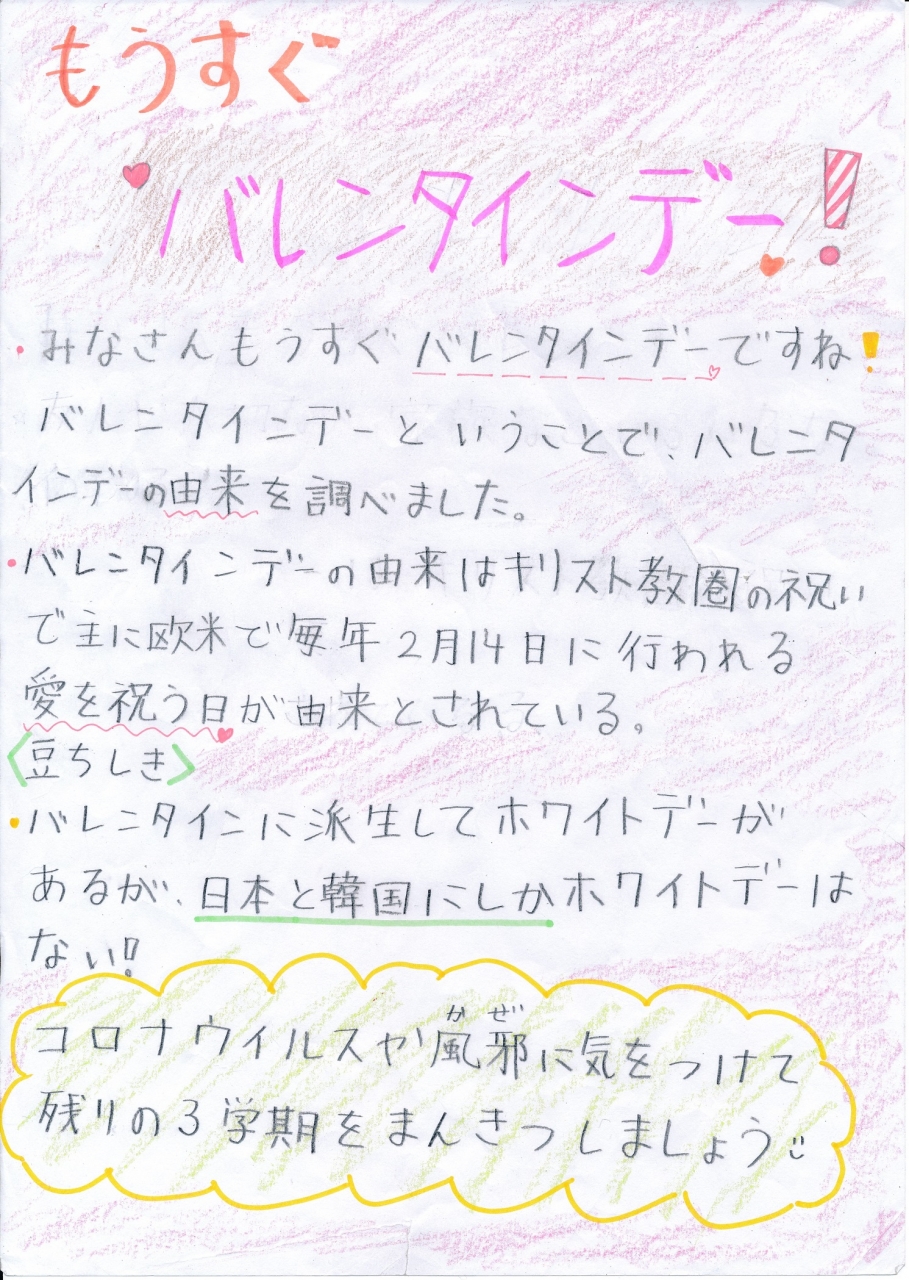 もうすぐ
バレンタインデー!
・みなさんもうすぐバレンタインデーですね!
バレンタインデーということで、バレンタ
インデーの由来を調べました。
・バレンタインデーの由来はキリスト教圏の祝い
で主に欧米で毎年2月14日に行われる
愛を祝う日が由来とされている。
〈豆ちしき〉
・バレンタインに派生してホワイトデーが
あるが、日本と韓国にしかホワイトデーは
ない!
コロナウイルスや風邪に気をつけて
かぜ
残りの3学期をまんきつしましょう